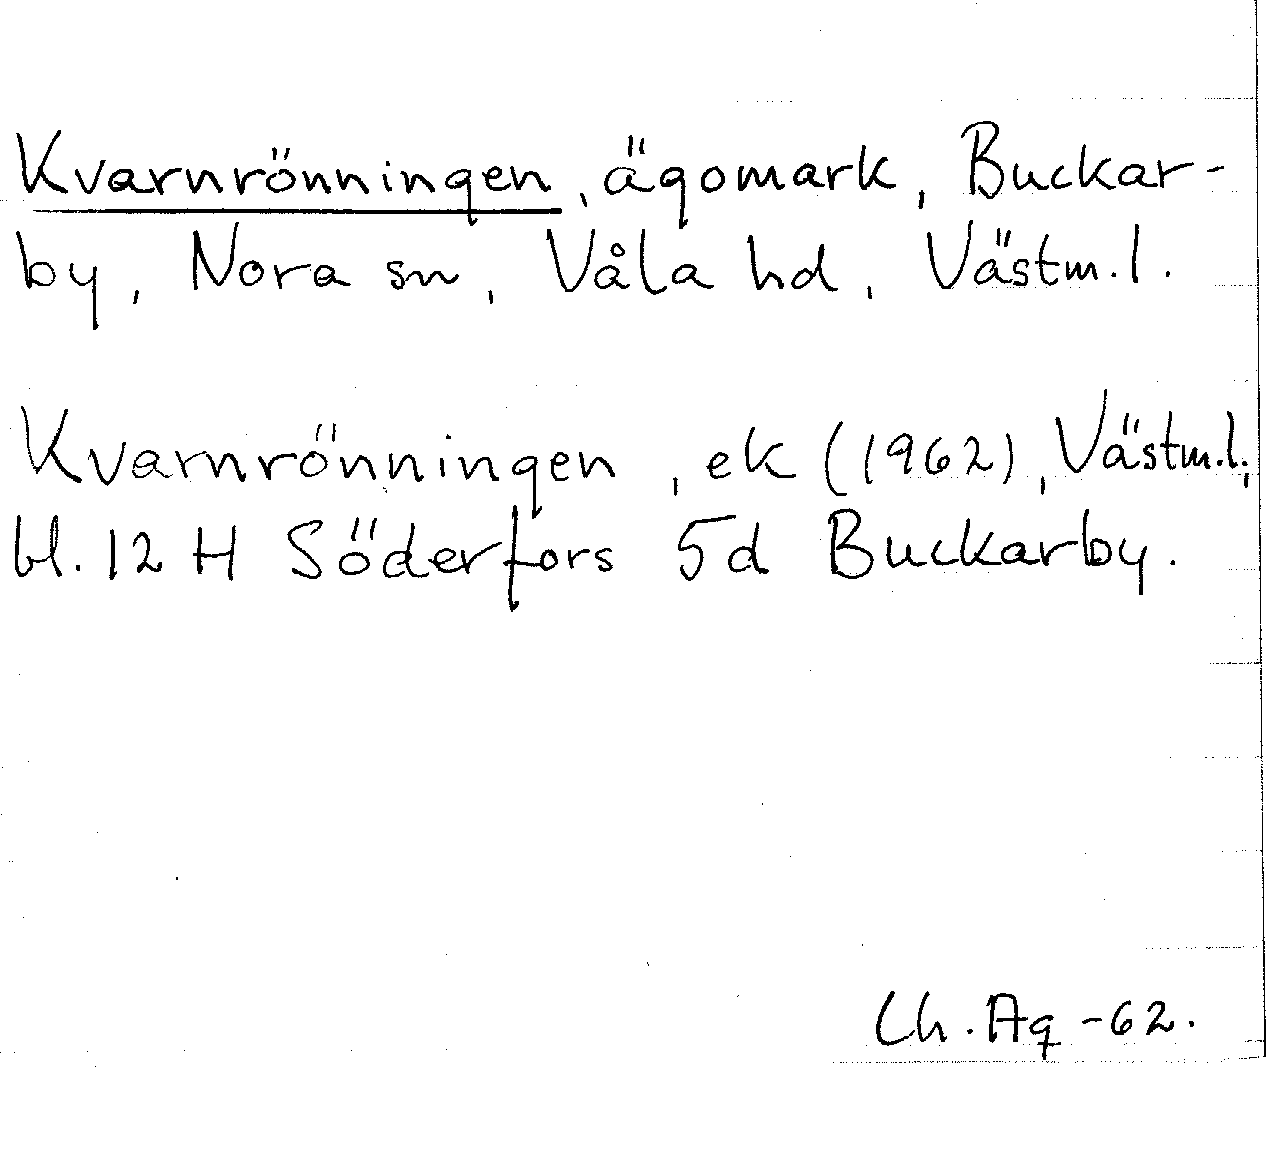 Kvarnrönningen, ägomark, Buckar-
by, Nora sn, Våla hd, Västm.l.
Kvarnrönningen, ek (1962), Västm.l.,
bl. 12 H Söderfors 5d Buckarby.
Ch. Ag -62.